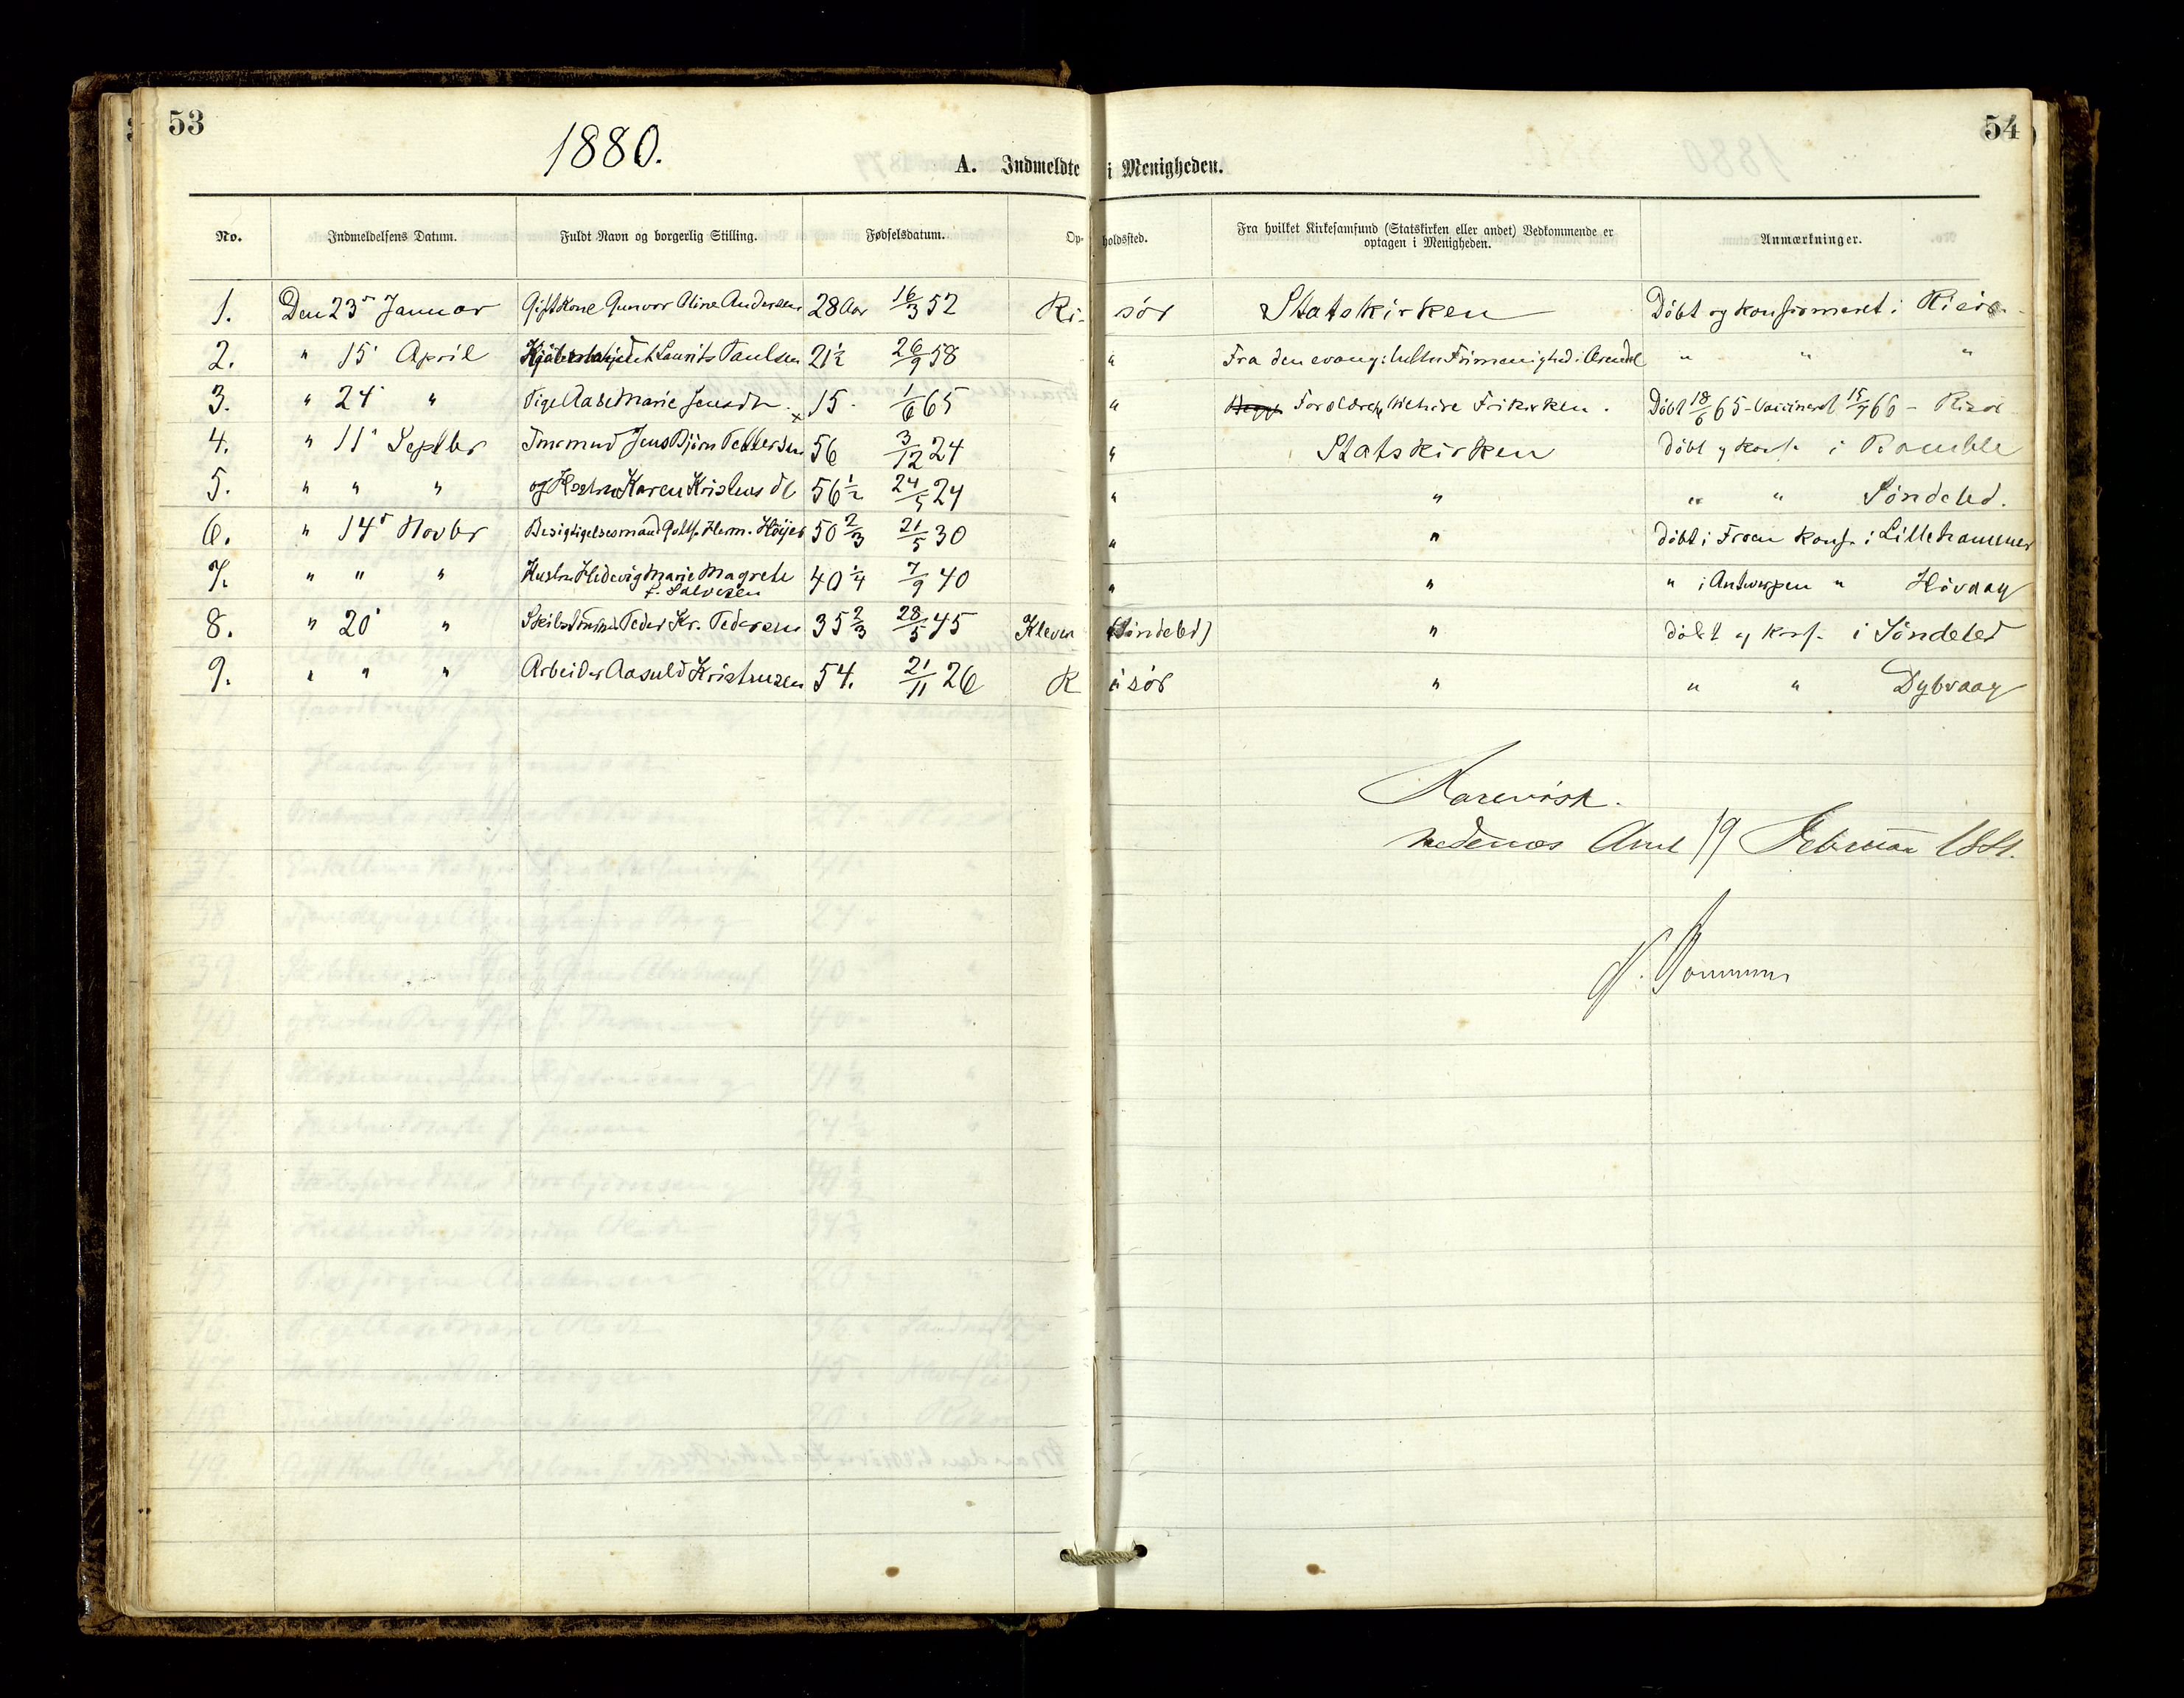 53
54
1880.
A. Indmeldte i Menigheden.
No. Indmeldelsens Datum. Fuldt Navn og borgerlig Stilling. Fødselsdatum. Opholdssted. Fra hvilket Kirkesamfund (Statskirken eller andet) Vedkommende er optagen i Menigheden. Anmærkninger.
1. Den 23' Januar Gift Kone Gunvor Aline Andersen 28 Aar 16/3 52 Risør Statskirken Døbt og konfirmeret i Risør
2. " 15' April Laurits Paulsen 21½ 26/9 58 " Fra den evang: luther Frimenighed i Arendal " " "
3. " 24' " Pige Aase Marie Jensdtr 15 1/6 65 " Forældrene tilhøre Frikirken. Døbt 18/6 65 - Vaccineret 15/9 66 - Risør
4. " 11' Septbr Tmrmnd Jens Bjørn Pettersen 56 3/12 24 " Statskirken døbt og konf. i Bamble
5. " " " og Hustru Karen Kristens dt 56½ 24/5 24 " " " " Søndeled.
6. " 14' Novbr Besigtigelsesmand Herm. Höijer 50 2/3 21/5 30 " " døbt i Froen konf. i Lillehammer
7. " " " Hustru Hedevig Marie Magrete f. Salvesen 40¼ 7/9 40 " " " i Antwerpen " Høvaag
8. " 20' " Peder Kr. Pedersen 35 2/3 28/5 45 Kleven (Søndeled) " døbt og konf. i Søndeled
9. " " " Arbeider Aasuld Kristensen 54. 21/11 26 Risør " " " Dybvaag
Nedenæs Amt 19 Februar 1881.